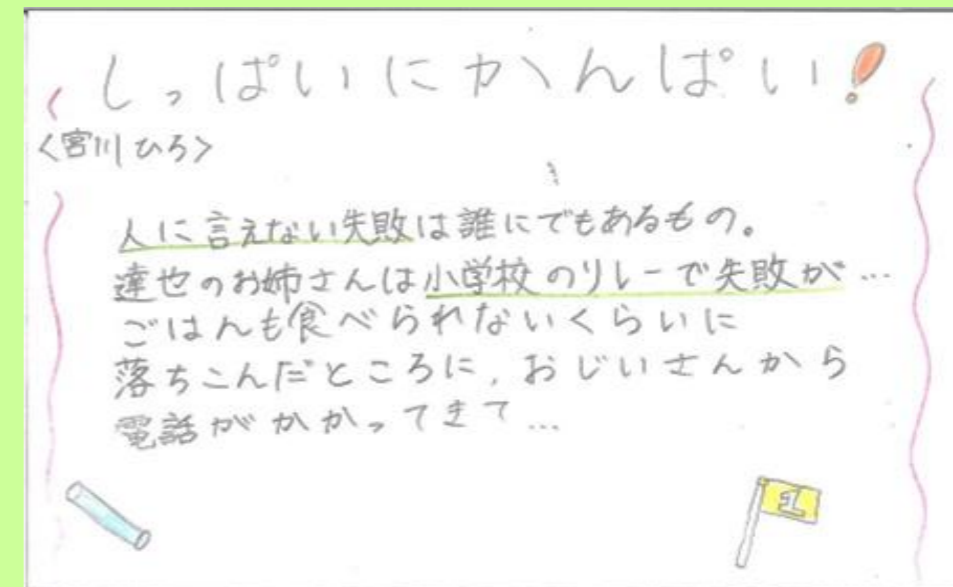 しっぱいにかんぱい!
<宮川ひろ>
人に言えない失敗は誰にでもあるもの。
達也のお姉さんは小学校のリレーで失敗が…
ごはんも食べられないくらいに
落ちこんだところに、おじいさんから
電話がかかってきて…
1